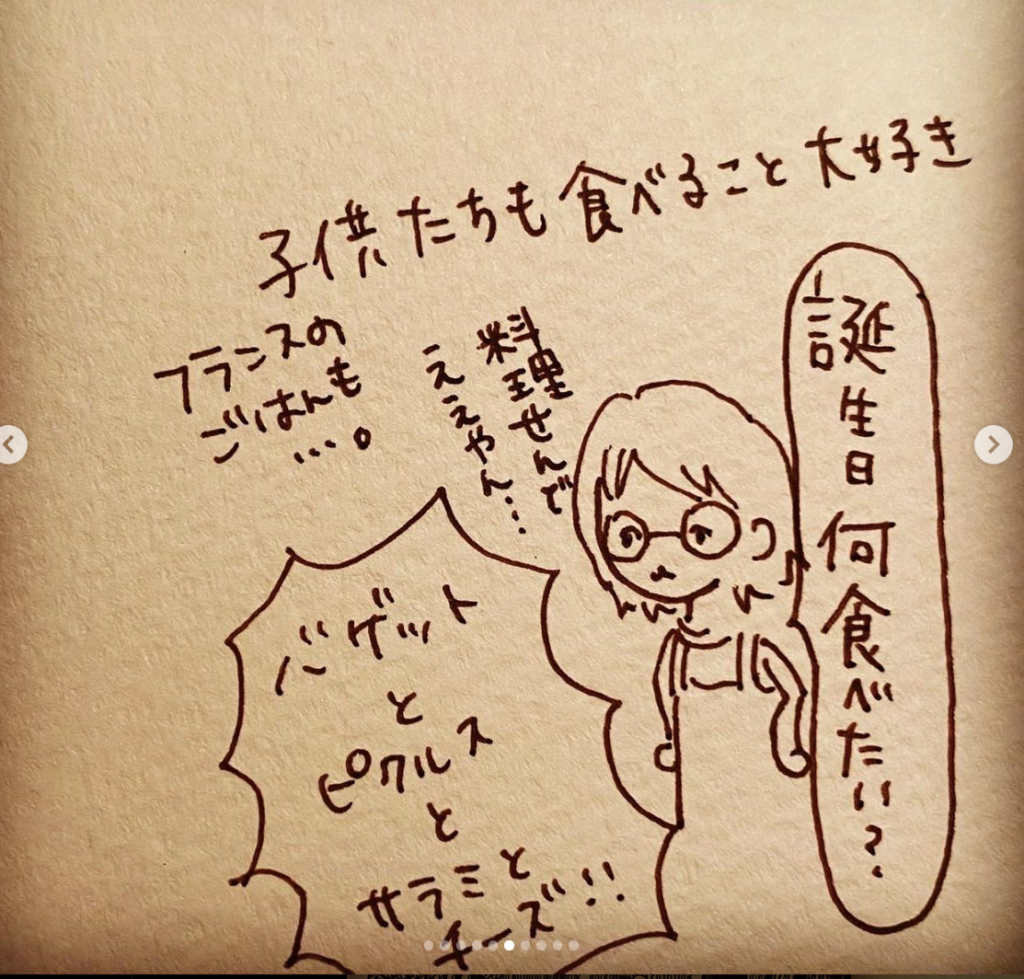 子供たちも食べること大好き
フランスの
ごはんも
…。
誕生日何食べたい？
料理せんで
ええやん…
バゲット
と
ピクルス
と
サラミと
チーズ!!